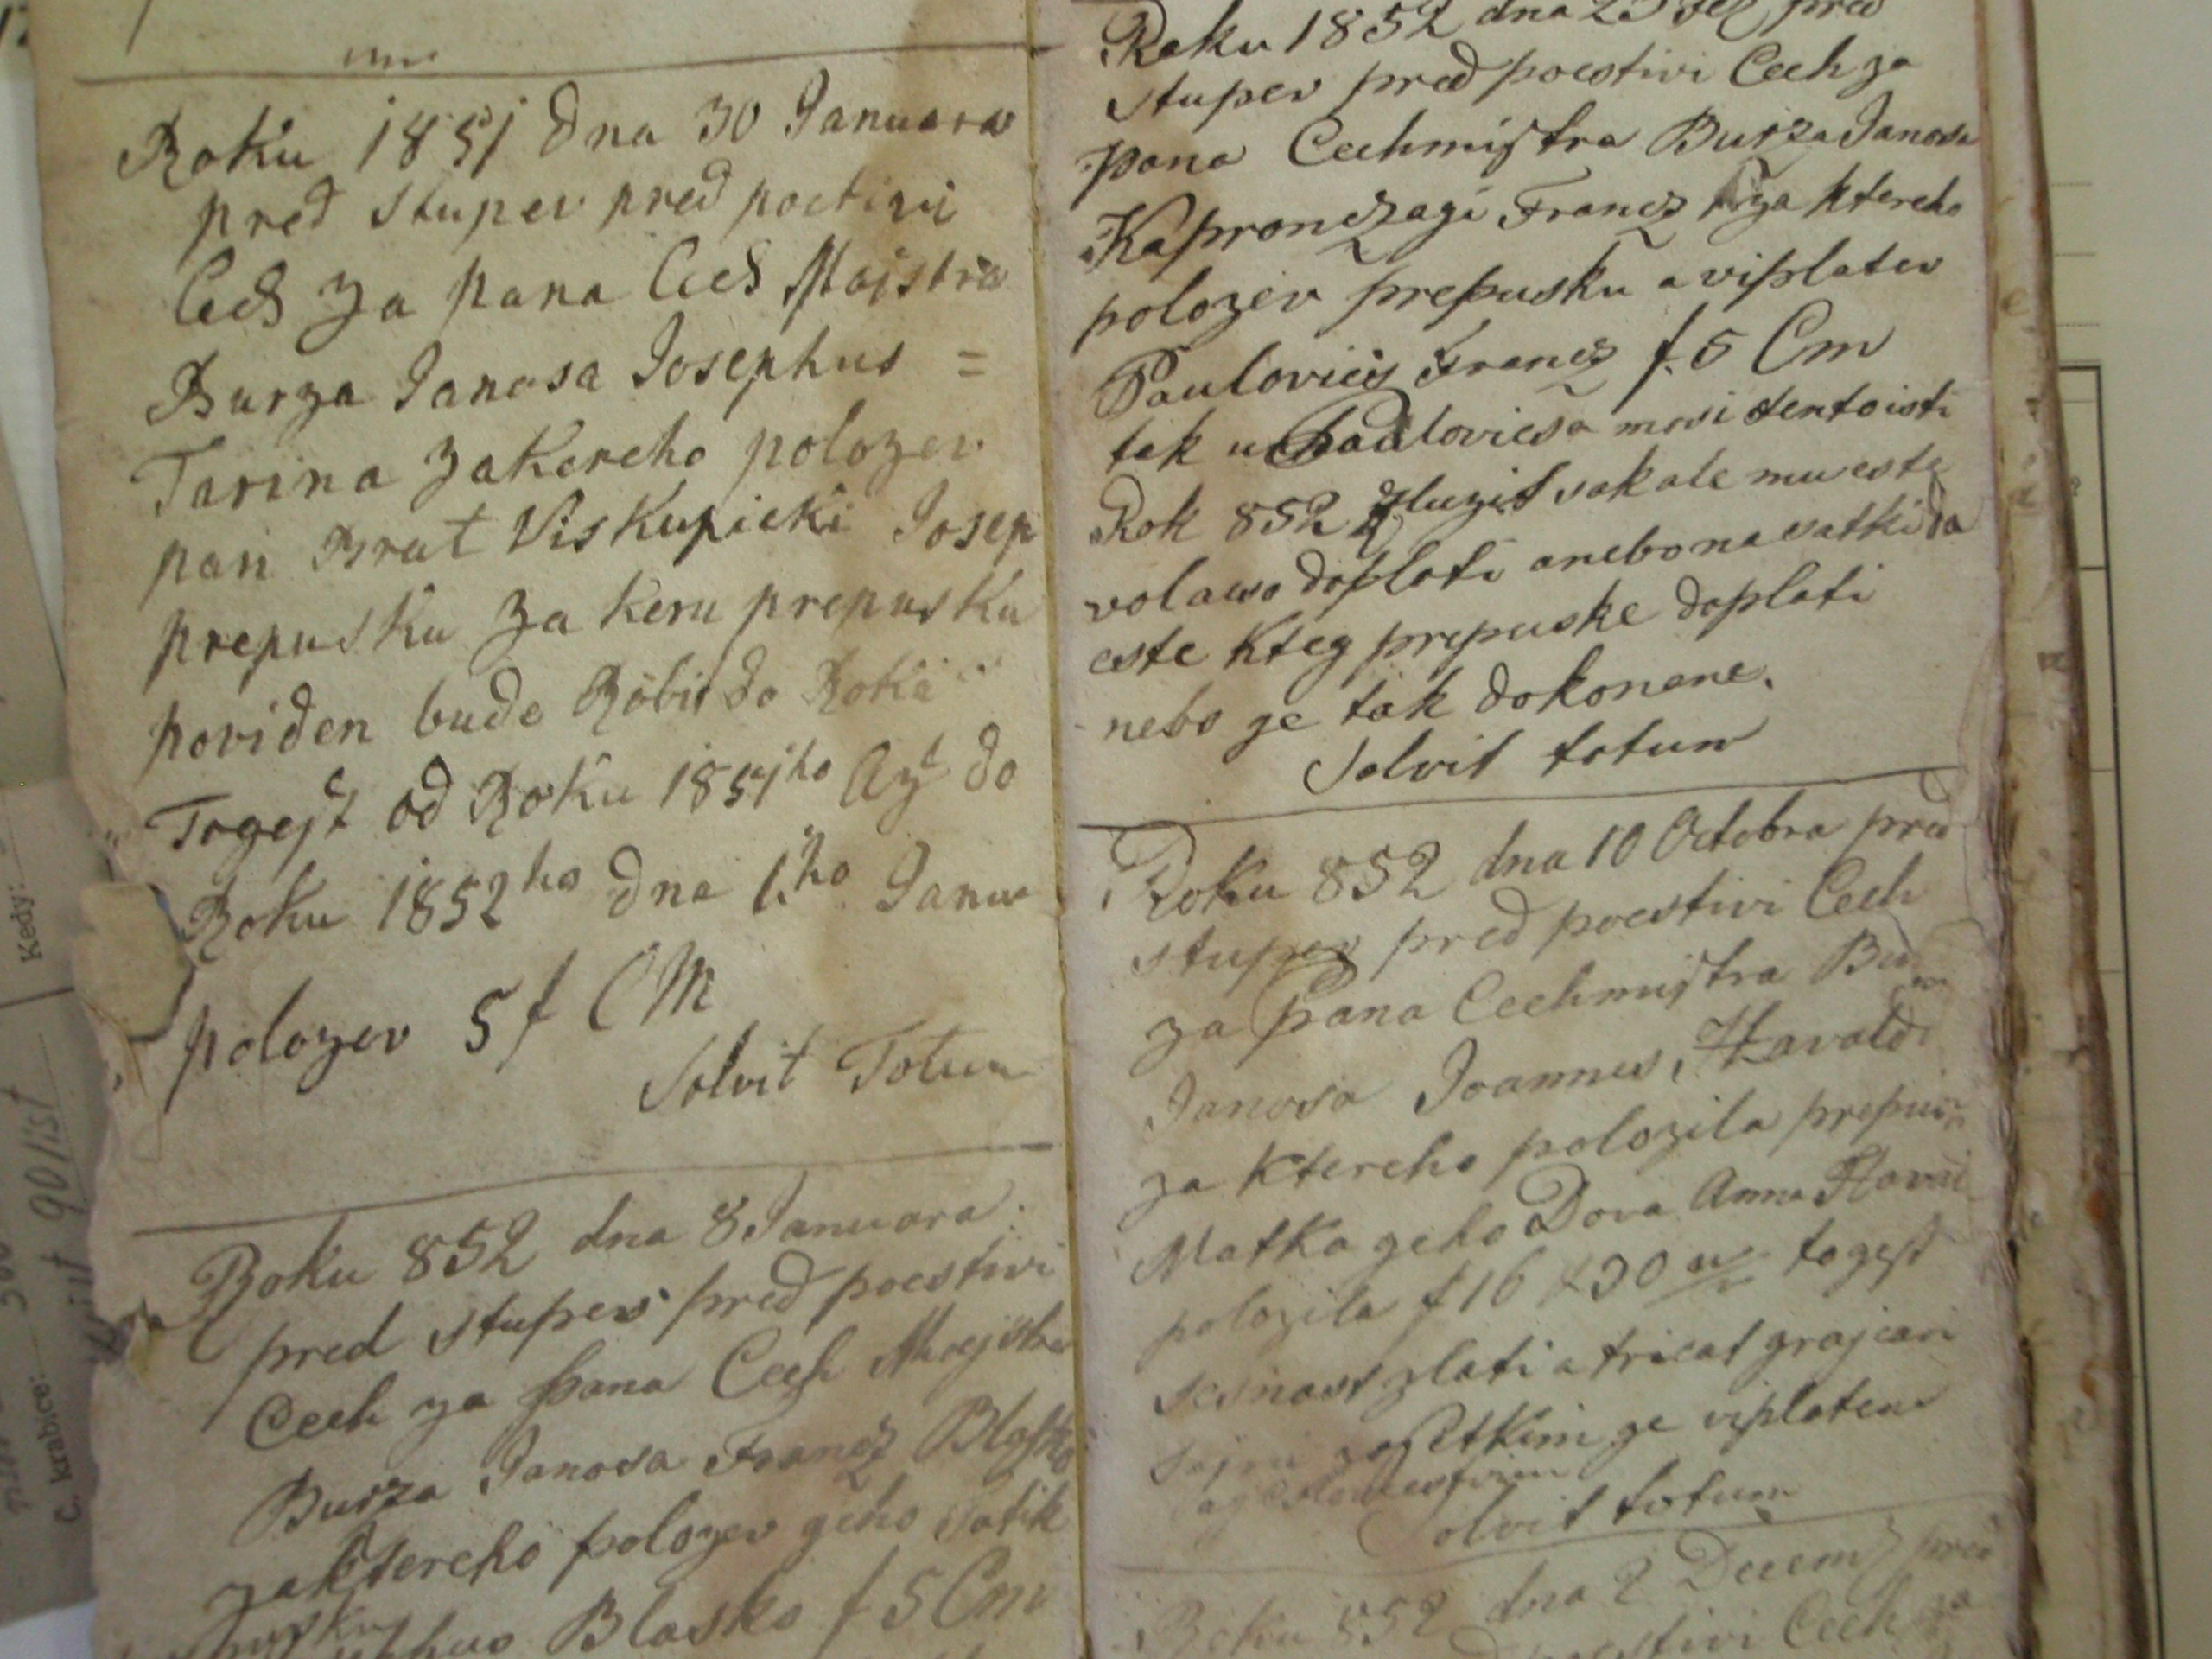 Roku 1851 dna 30 Januara
pred stupev pred poctivi
Cech za pana Cech Majstra
Burza Janosa Josephus =
Tarina zakereho polozev
pan Brat Viskupicki Josep
prepusku za keru prepusku
poviden bude Robit do Roka
Togest od Roku 1851ho Az do
Roku 1852ho dna 1.ho Janua
polozev 5 f CM
Solvit Totum
Roku 852 dna 8 Januara
pred stupev pred poestivi
Cech za pana Cech Majstra
Burza Janosa Francz Blasko
zaktereho polozev geho
Blasko f 5 Cm
Roku 1852 dna 25 pred
stupev pred poestivi Cech za
pana Cechmistra Burza Janosa
Kapronczagi Francz za ktereho
polozev prepusku a viplatev
Paulovics Francz f. 5 Cm
tak u Paulovicsa mosi tentoisti
Rok 852 sluzit vsak ale mu este
volaco doplati anebo na
este kteg prepuske doplati
nebo ge tak dokonane.
Solvit totum
Roku 852 dna 10 Octobra pred
stupev pred poestivi Cech
za pana Cechmistra
Janosa Joannes
za ktereho polozila
Matka geho Anna
polozila f 16 x 30 togest
sesnast zlati a tricat grajcari
ge viplateni
Solvit totum
Roku 852 dna 2 Decem pred
poestivi Cech za
Kedy:
90 list
Č. krabice: